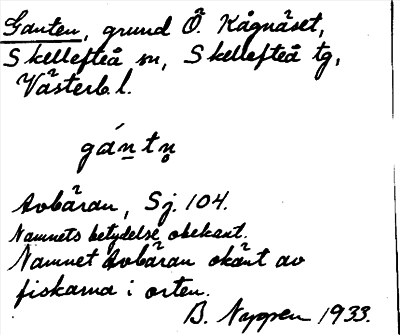 Ganten, grund Ö. Kågnäset,
Skellefteå sn, Skellefteå tg,
Västerb. l.
gán̲tn̥
Avbäran, Sj. 104.
Namnets betydelse obekant.
Namnet Avbäran okänt av
fiskarna i orten.
B. Nyggen 1933.